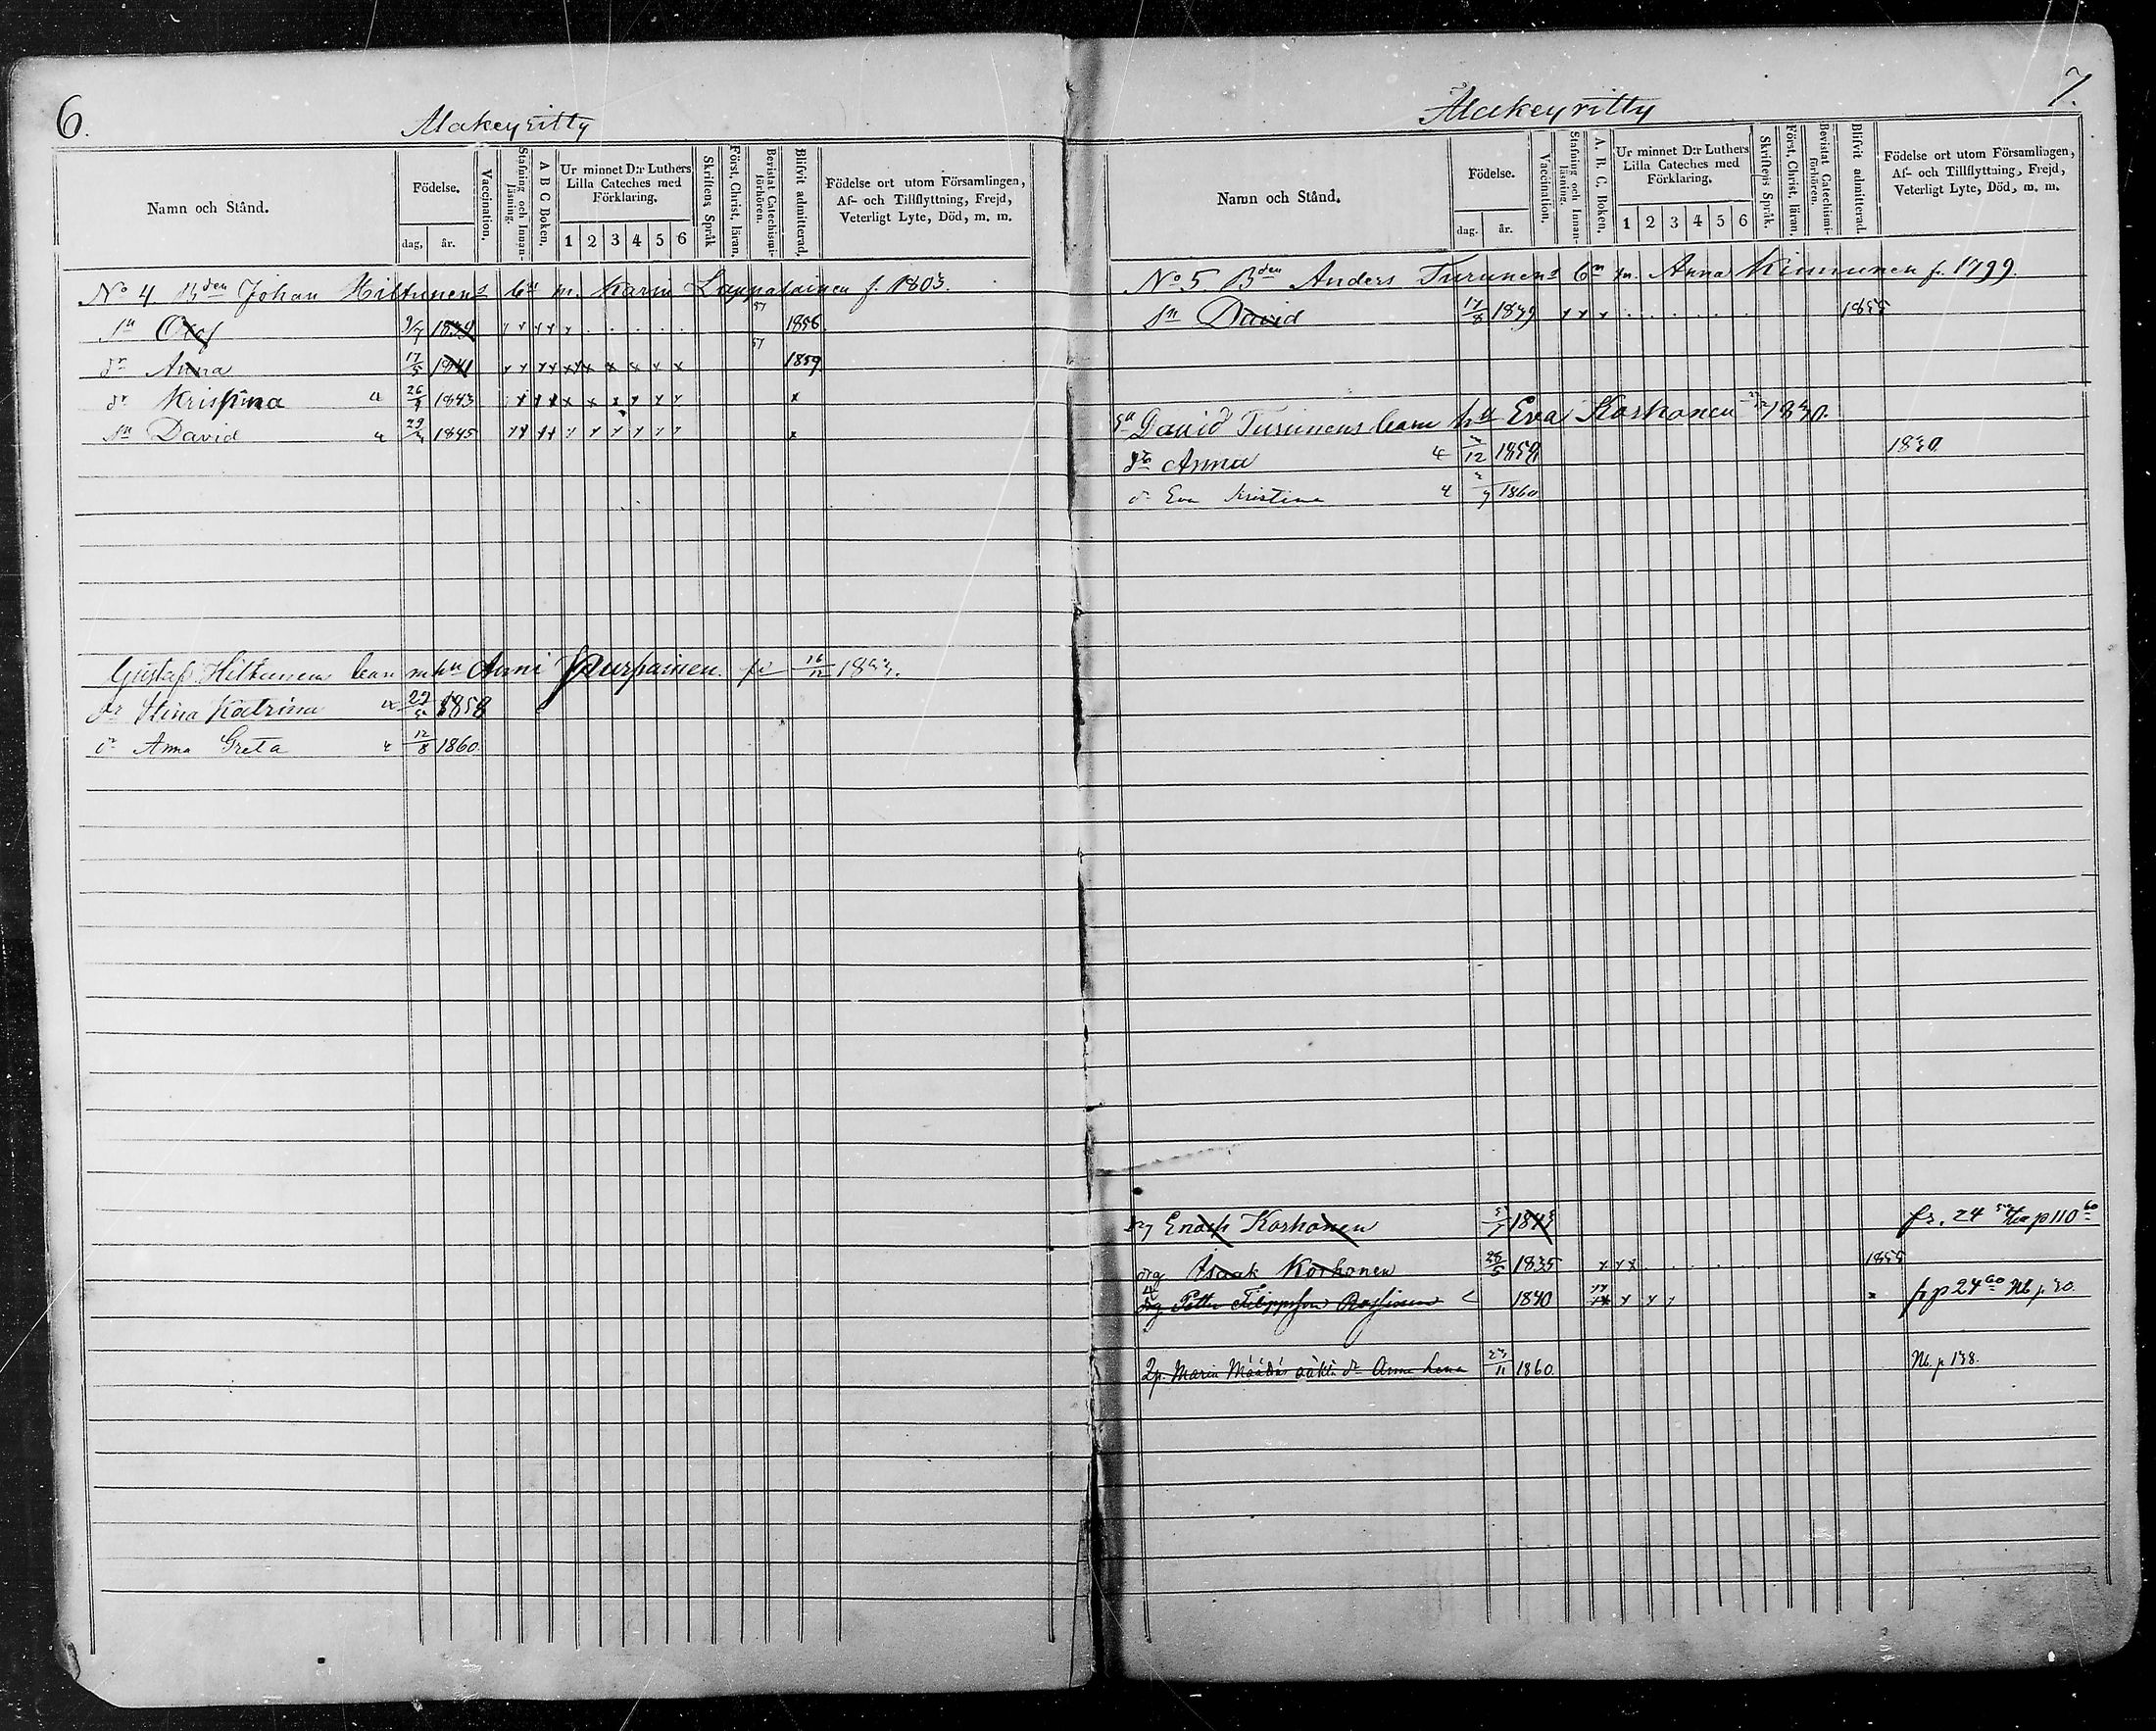 6.
Makeyritty
Namn och Stånd.
Födelse.
dag, år.
Vaccination.
Stafning och Innan-läsning.
A B C Boken.
Ur minnet D:r Luthers Lilla Cateches med Förklaring.
1 2 3 4 5 6
Skriftens Språk
Först. Christ. läran.
Bevistat Catechismi-förhören.
Blifvit admitterad.
Födelse ort utom Församlingen, Af- och Tillflyttning, Frejd, Veterligt Lyte, Död, m. m.
No 4. Bden Johan Hiltunens bn m. Karin Lappalainen f. 1803.
Sn Olof 9/7 1839 x x x x x 57 1856
dr Anna 17/5 1841 x x x x x x x x x x x 57 1859
dr Kristina a 26/7 1843 x x x x x x x x x x
Sn David a 1845 x x x x x x x x x x x
Gustaf Hiltunens barn m hu Anni Purpainen. 16/12
dr Stina Katrina 1858
dr Anna Greta 12/8 1860
7.
Makeyritty
Namn och Stånd.
Födelse.
dag. år.
Vaccination.
Stafning och Innan-läsning.
A. B. C. Boken.
Ur minnet D:r Luthers Lilla Cateches med Förklaring.
1 2 3 4 5 6
Skriftens Språk.
Först. Christ. läran.
Bevistat Catechismi-förhören.
Blifvit admitterad.
Födelse ort utom Församlingen, Af- och Tillflyttning, Frejd, Veterligt Lyte, Död, m. m.
No 5. Bden Anders Turunens bn m. Anna Kinnunen f. 1799.
Sn David 17/8 1839 x x x 1855
Sn David Turunens barn hu Eva Korhonen 1830.
dr Anna 1859 1830
dr Eva Kristina 1860
Enoch Korhonen fr. 24 p 110 60
drg Isaak Korhonen 28/5 1835 x x x 1855
drg Petter Filippsson 1840 x x x x fr p 24 60 Nb p. 30.
Maria dr Anna Lena 23/11 1860 Nb. p 138.